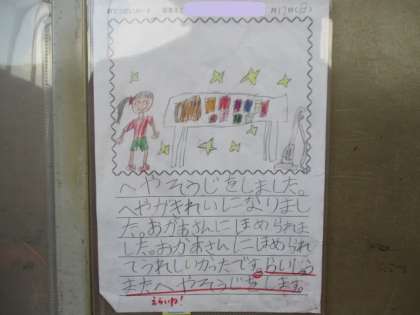 へやそうじをしました。
へやがきれいになりまし
た。おかあさんにほめられま
した。おかあさんにほめられ
てうれしいかったです。らいしゅう
またへやそうじをします。
えらいね!